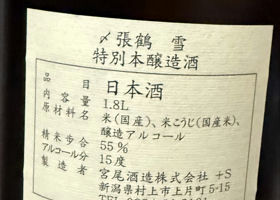 〆張鶴 雪
特別本醸造酒
品目 日本酒
内容量 1.8L
原材料名 米(国産)、米こうじ(国産米)、
醸造アルコール
精米歩合 55%
アルコール分 15度
製造者 宮尾酒造株式会社 +S
新潟県村上市上片町5-15